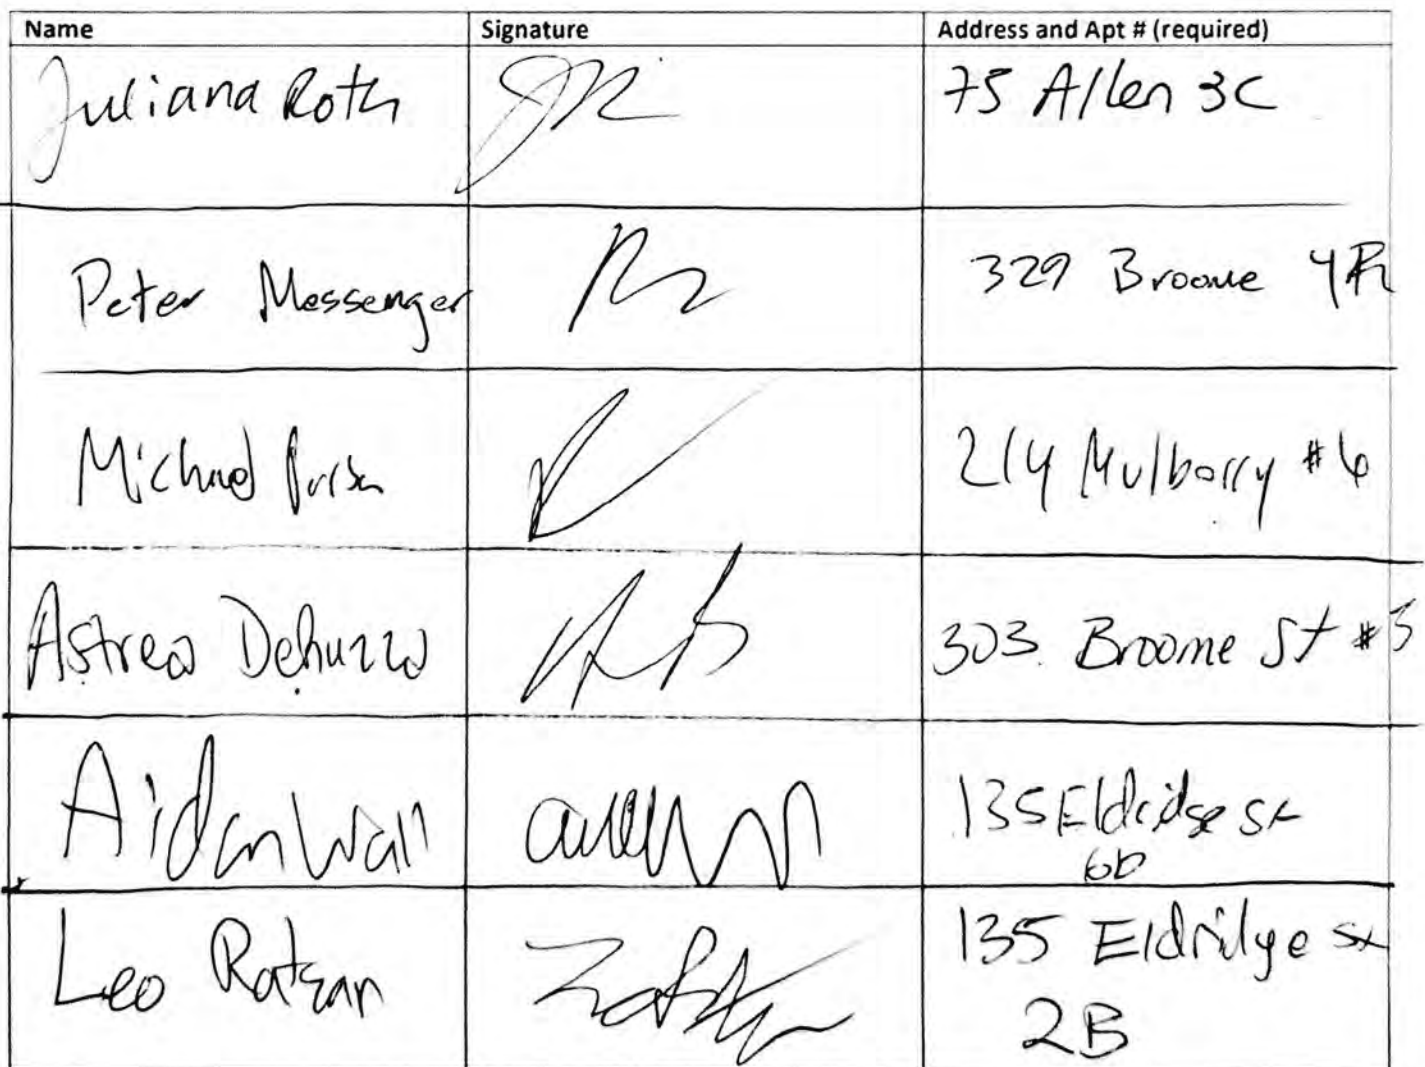 Name Signature Address and Apt # (required)
Juliana Roth 75 Allen 3C
Peter Messenger 329 Broome 4R
Michael 214 Mulberry #6
Astrea 303 Broome St #3
Aidan Wall 135 Eldridge St
6D
Leo Ratzan 135 Eldridge St
2B